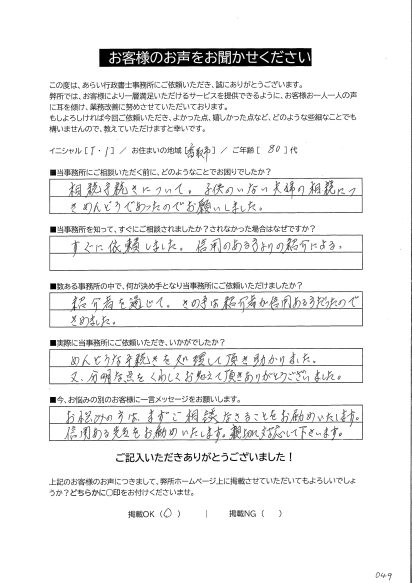 お客様のお声をお聞かせください
この度は、あらい行政書士事務所にご依頼いただき、誠にありがとうございます。
弊所では、お客様により一層満足いただけるサービスを提供できるように、お客様お一人一人の声
に耳を傾け、業務改善に努めさせていただいております。
もしよろしければ今回ご依頼いただき、よかった点、嬉しかった点など、どのような些細なことでも
構いませんので、教えていただけますと幸いです。
イニシャル [ I・I ] / お住まいの地域 [ 香取市 ] / ご年齢 [ 80 ] 代
■当事務所にご相談いただく前に、どのようなことでお困りでしたか?
相続手続きについて。子供のいない夫婦の相続につ
きめんどうであったのでお願いしました。
■当事務所を知って、すぐにご相談されましたか?されなかった場合はなぜですか?
すぐに依頼しました。信用のある方よりの紹介による。
■数ある事務所の中で、何が決め手となり当事務所にご依頼いただけましたか?
紹介者を通じて。きめ手は紹介者が信用ある方だったので
きめました。
■実際に当事務所にご依頼いただき、いかがでしたか?
めんどうな手続きを処理して頂き助かりました。
又、不明な点をくわしくお教えて頂きありがとうございました。
■今、お悩みの別のお客様に一言メッセージをお願いします。
お悩みの方は、まずご相談なさることをお勧めいたします。
信用ある先生をお勧めいたします。親切に対応して下さいます。
ご記入いただきありがとうございました!
上記のお客様のお声につきまして、弊所ホームページ上に掲載させていただいてもよろしいでしょ
うか?どちらかに○印をお付けくださいませ。
掲載OK ( ○ ) | 掲載NG ( )
049